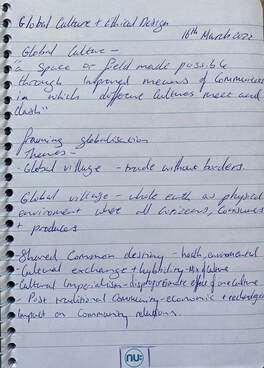 Global Culture + Ethical Design
16th March 2022
Global Culture -
"a space or field made possible
through improved means of communication
in which different Cultures meet and
clash"
framing - globalisation
Themes -
- Global village - trade without borders.
Global village - whole earth as physical
enviroment where all citizens, consumers
+ producers
- Shared Common destiny - health, enviromental
- Cultural exchange + hybridity - Mix of culture
Cultural Imperialism - disproportionate effect of one culture
- Post traditional Community - economic + technological
Impact on Community relations.
nu: